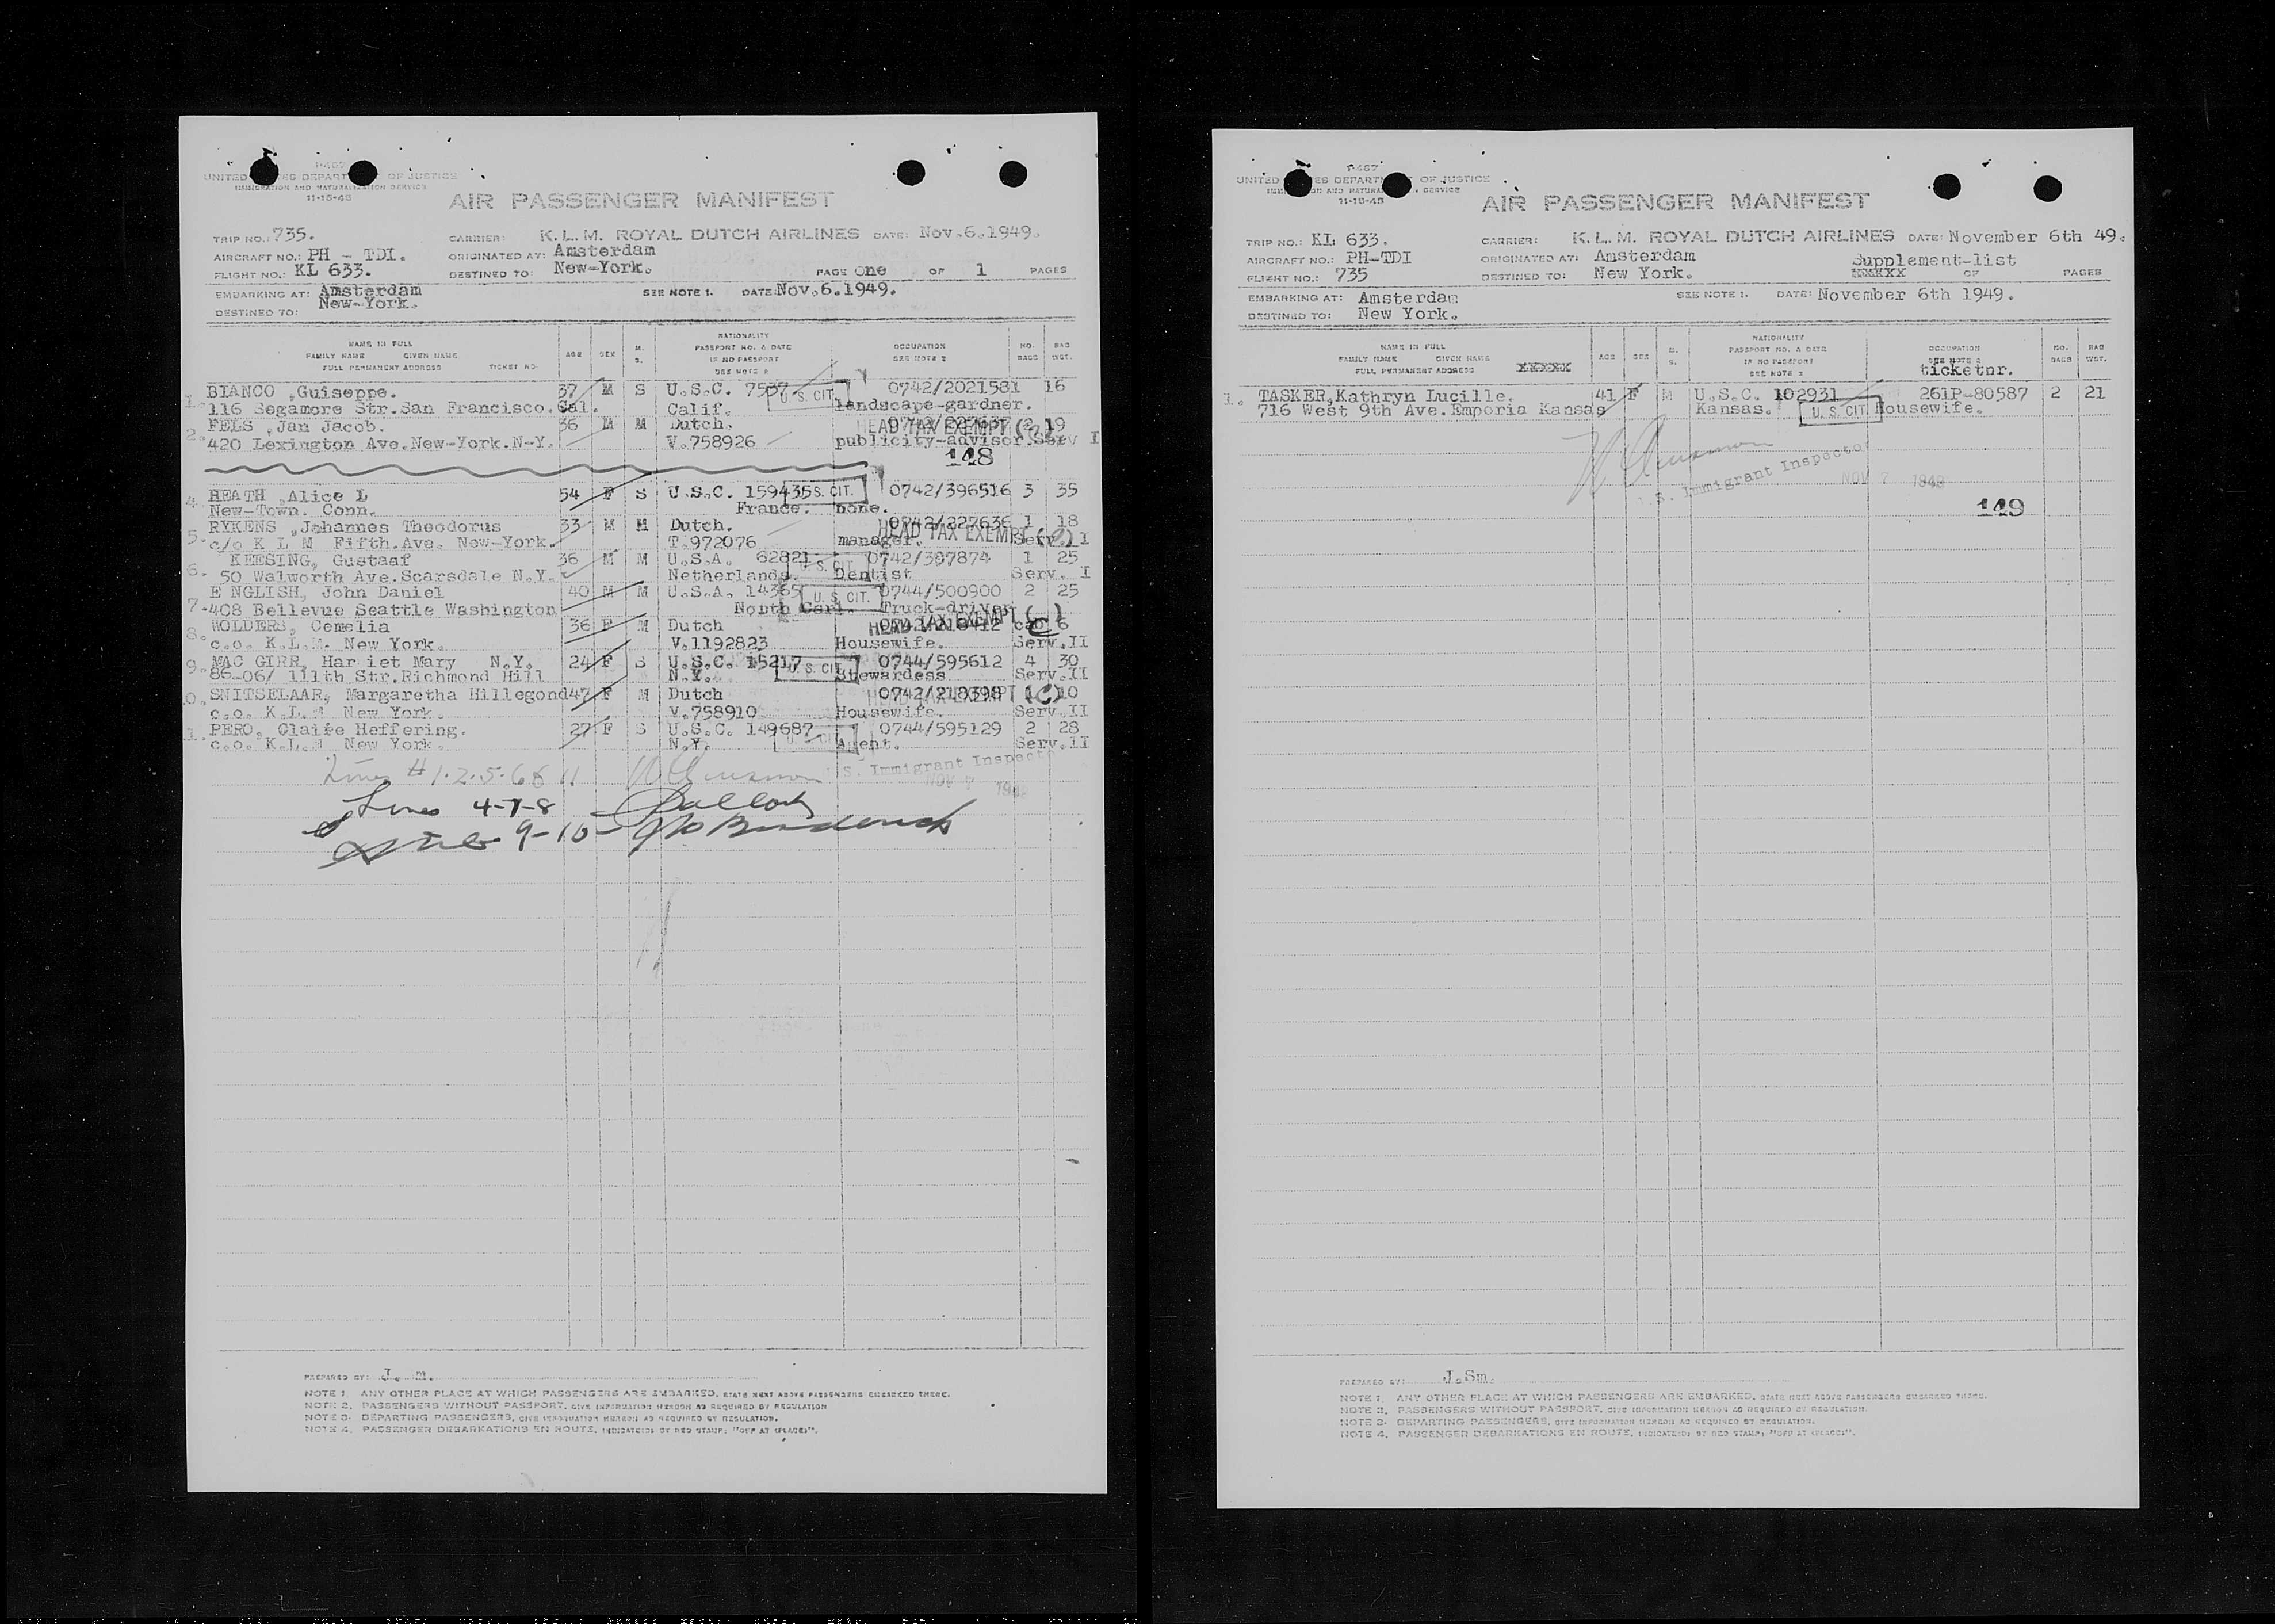 P-467
UNITED STATES DEPARTMENT OF JUSTICE
IMMIGRATION AND NATURALIZATION SERVICE
11-15-45
AIR PASSENGER MANIFEST
TRIP NO.: 735.
CARRIER: K.L.M. ROYAL DUTCH AIRLINES DATE: Nov.6.1949.
AIRCRAFT NO.: PH - TDI. ORIGINATED AT: Amsterdam
FLIGHT NO.: KL 633. DESTINED TO: New-York. PAGE One OF 1 PAGES
EMBARKING AT: Amsterdam SEE NOTE 1. DATE: Nov.6.1949.
DESTINED TO: New-York.
NAME IN FULL
FAMILY NAME GIVEN NAME
FULL PERMANENT ADDRESS TICKET NO.
AGE SEX M. S.
NATIONALITY
PASSPORT NO. & DATE
IF NO PASSPORT
SEE NOTE 2
OCCUPATION
SEE NOTE 2
NO. BAGS
BAG WGT.
1. BIANCO ,Guiseppe. 37 M S U.S.C. 7567 U.S. CIT. 0742/2021581 16
116 Segamore Str.San Francisco.Cal. Calif. landscape-gardner.
2. FELS ,Jan Jacob. 36 M M Dutch. HEAD TAX EXEMPT 2 19
420 Lexington Ave.New-York.N-Y. V.758926 publicity-advisor.Serv I
148
4. HEATH ,Alice L 54 F S U.S.C. 159435 U.S. CIT. 0742/396516 3 35
New-Town. Conn. France. none.
5. RYKENS ,Johannes Theodorus 33 M M Dutch. 0742/227636 1 18
c/o K L M Fifth.Ave. New-York. T.972076 manager. HEAD TAX EXEMPT Serv. 1
6. KEESING, Gustaaf 36 M M U.S.A. 62821 U.S. CIT. 0742/397874 1 25
50 Walworth Ave.Scarsdale N.Y. Netherlands. Dentist Serv. I
7. E NGLISH, John Daniel 40 M M U.S.A. 14365 U.S. CIT. 0744/500900 2 25
408 Bellevue Seattle Washington North Carl. Truck-driver
8. WOLDERS, Cemelia 36 F M Dutch HEAD TAX EXEMPT (C) 6
c.o. K.L.M. New York. V.1192823 Housewife. Serv.II
9. MAC GIRR, Har iet Mary N.Y. 24 F S U.S.C. 15217 U.S. CIT. 0744/595612 4 30
86-06/ 111th Str.Richmond Hill N.Y. Stewardess Serv.II
10. SNITSELAAR, Margaretha Hillegond 47 F M Dutch 0742/218398 1 (C) 10
c.o. K.L.M New York. V.758910 Housewife. Serv.II
11. PERO, Claire Heffering. 27 F S U.S.C. 149687 0744/595129 2 28
c.o. K.L.M New York. N.Y. Agent. Serv.II
Lines #1.2.5.6 & 11 U.S. Immigrant Inspector
NOV 7 1949
Lines 4-7-8
9-10
PREPARED BY: J. m.
NOTE 1. ANY OTHER PLACE AT WHICH PASSENGERS ARE EMBARKED, STATE NEXT ABOVE PASSENGERS EMBARKED THERE.
NOTE 2. PASSENGERS WITHOUT PASSPORT, GIVE INFORMATION HEREON AS REQUIRED BY REGULATION
NOTE 3. DEPARTING PASSENGERS, GIVE INFORMATION HEREON AS REQUIRED BY REGULATION.
NOTE 4. PASSENGER DEBARKATIONS EN ROUTE, INDICATED: BY RED STAMP: "OFF AT (PLACE)".
P-467
UNITED STATES DEPARTMENT OF JUSTICE
IMMIGRATION AND NATURALIZATION SERVICE
11-15-45
AIR PASSENGER MANIFEST
TRIP NO.: KL 633. CARRIER: K.L.M. ROYAL DUTCH AIRLINES DATE: November 6th 49.
AIRCRAFT NO.: PH-TDI ORIGINATED AT: Amsterdam Supplement-list
FLIGHT NO.: 735 DESTINED TO: New York. OF PAGES
EMBARKING AT: Amsterdam SEE NOTE 1. DATE: November 6th 1949.
DESTINED TO: New York.
NAME IN FULL
FAMILY NAME GIVEN NAME
FULL PERMANENT ADDRESS
AGE SEX M. S.
NATIONALITY
PASSPORT NO. & DATE
IF NO PASSPORT
SEE NOTE 2
OCCUPATION
SEE NOTE 2
ticketnr.
NO. BAGS
BAG WGT.
1. TASKER,Kathryn Lucille. 41 F M U.S.C. 102931 261P-80587 2 21
716 West 9th Ave.Emporia Kansas Kansas. U.S. CIT. Housewife.
U.S. Immigrant Inspector
NOV 7 1949
149
PREPARED BY: J.Sm.
NOTE 1. ANY OTHER PLACE AT WHICH PASSENGERS ARE EMBARKED, STATE NEXT ABOVE PASSENGERS EMBARKED THERE.
NOTE 2. PASSENGERS WITHOUT PASSPORT, GIVE INFORMATION HEREON AS REQUIRED BY REGULATION.
NOTE 3. DEPARTING PASSENGERS, GIVE INFORMATION HEREON AS REQUIRED BY REGULATION.
NOTE 4. PASSENGER DEBARKATIONS EN ROUTE, INDICATED: BY RED STAMP: "OFF AT (PLACE)".